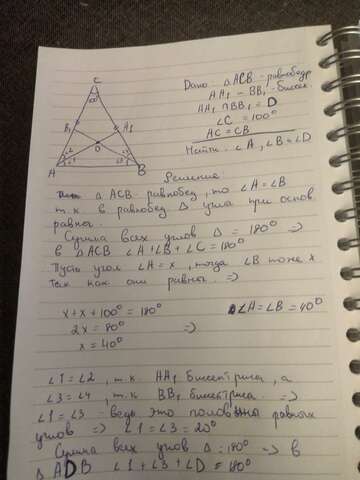 C
100°
B₁
A₁
O
A
B
Дано: △ACB - равнобедр
AA₁ - BB₁ - биссек.
AA₁ ∩ BB₁ = D
∠C = 100°
AC = CB
Найти: ∠A, ∠B, ∠D
Решение
△ ACB равнобед, то ∠A = ∠B
т.к. в равнобед. △ углы при основ.
равны.
Сумма всех углов △ = 180° =>
в △ACB ∠A + ∠B + ∠C = 180°
Пусть угол ∠A = x, тогда ∠B тоже x
так как они равны. =>
x + x + 100° = 180°
∠A = ∠B = 40°
2x = 80° =>
x = 40°
∠1 = ∠2, т.к. AA₁ биссектриса, а
∠3 = ∠4, т.к. BB₁ биссектриса. =>
∠1 = ∠3 - ведь это половины равных
углов => ∠1 = ∠3 = 20°
Сумма всех углов △ = 180° => в
△ ADB ∠1 + ∠3 + ∠D = 180°